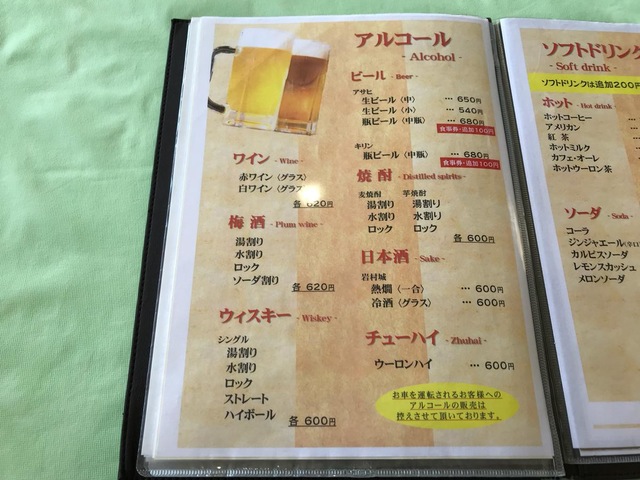 アルコール
- Alcohol -
ビール - Beer -
アサヒ
生ビール〈中〉 … 650円
生ビール〈小〉 … 540円
瓶ビール〈中瓶〉 … 680円
食事券・追加100円
キリン
瓶ビール〈中瓶〉 … 680円
食事券・追加100円
ワイン - Wine -
赤ワイン〈グラス〉
白ワイン〈グラス〉
各 620円
梅酒 - Plum wine -
湯割り
水割り
ロック
ソーダ割り
各 620円
ウィスキー - Wiskey -
シングル
湯割り
水割り
ロック
ストレート
ハイボール
各 600円
焼酎 - Distilled spirits -
麦焼酎 芋焼酎
湯割り 湯割り
水割り 水割り
ロック ロック
各 600円
日本酒 - Sake -
岩村城
熱燗〈一合〉 … 600円
冷酒〈グラス〉 … 600円
チューハイ - Zhuhai -
ウーロンハイ … 600円
お車を運転されるお客様への
アルコールの販売は
控えさせて頂いております。
ソフトドリンク
- Soft drink -
ソフトドリンクは追加200円
ホット - Hot drink -
ホットコーヒー
アメリカン
紅茶
ホットミルク
カフェ・オーレ
ホットウーロン茶
ソーダ - Soda
コーラ
ジンジャエール(辛口
カルピスソーダ
レモンスカッシュ
メロンソーダ